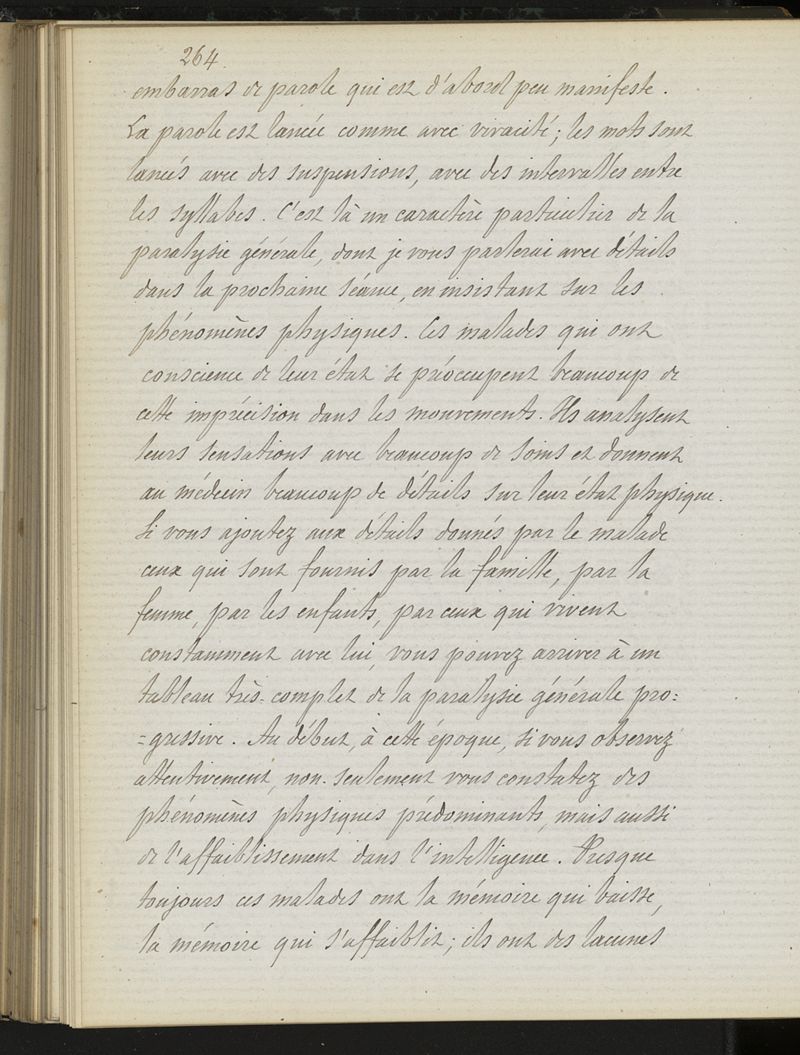 264.
embarras de parole qui est d'abord peu manifeste.
La parole est lancée comme avec vivacité; les mots sont
lancés avec des suspensions, avec des intervalles entre
les syllabes. C'est là un caractère particulier de la
paralysie générale, dont je vous parlerai avec détails
dans la prochaine séance, en insistant sur les
phénomènes physiques. Ces malades qui ont
conscience de leur état se préoccupent beaucoup de
cette imprécision dans les mouvements. Ils analysent
leurs sensations avec beaucoup de soins et donnent
au médecin beaucoup de détails sur leur état physique.
Si vous ajoutez aux détails donnés par le malade
ceux qui sont fournis par la famille, par la
femme, par les enfants, par ceux qui vivent
constamment avec lui, vous pouvez arriver à un
tableau très-complet de la paralysie générale pro=
=gressive. Au début, à cette époque, si vous observez
attentivement, non-seulement vous constatez des
phénomènes physiques prédominants, mais aussi
de l'affaiblissement dans l'intelligence. Presque
toujours ces malades ont la mémoire qui baisse,
la mémoire qui s'affaiblit; ils ont des lacunes